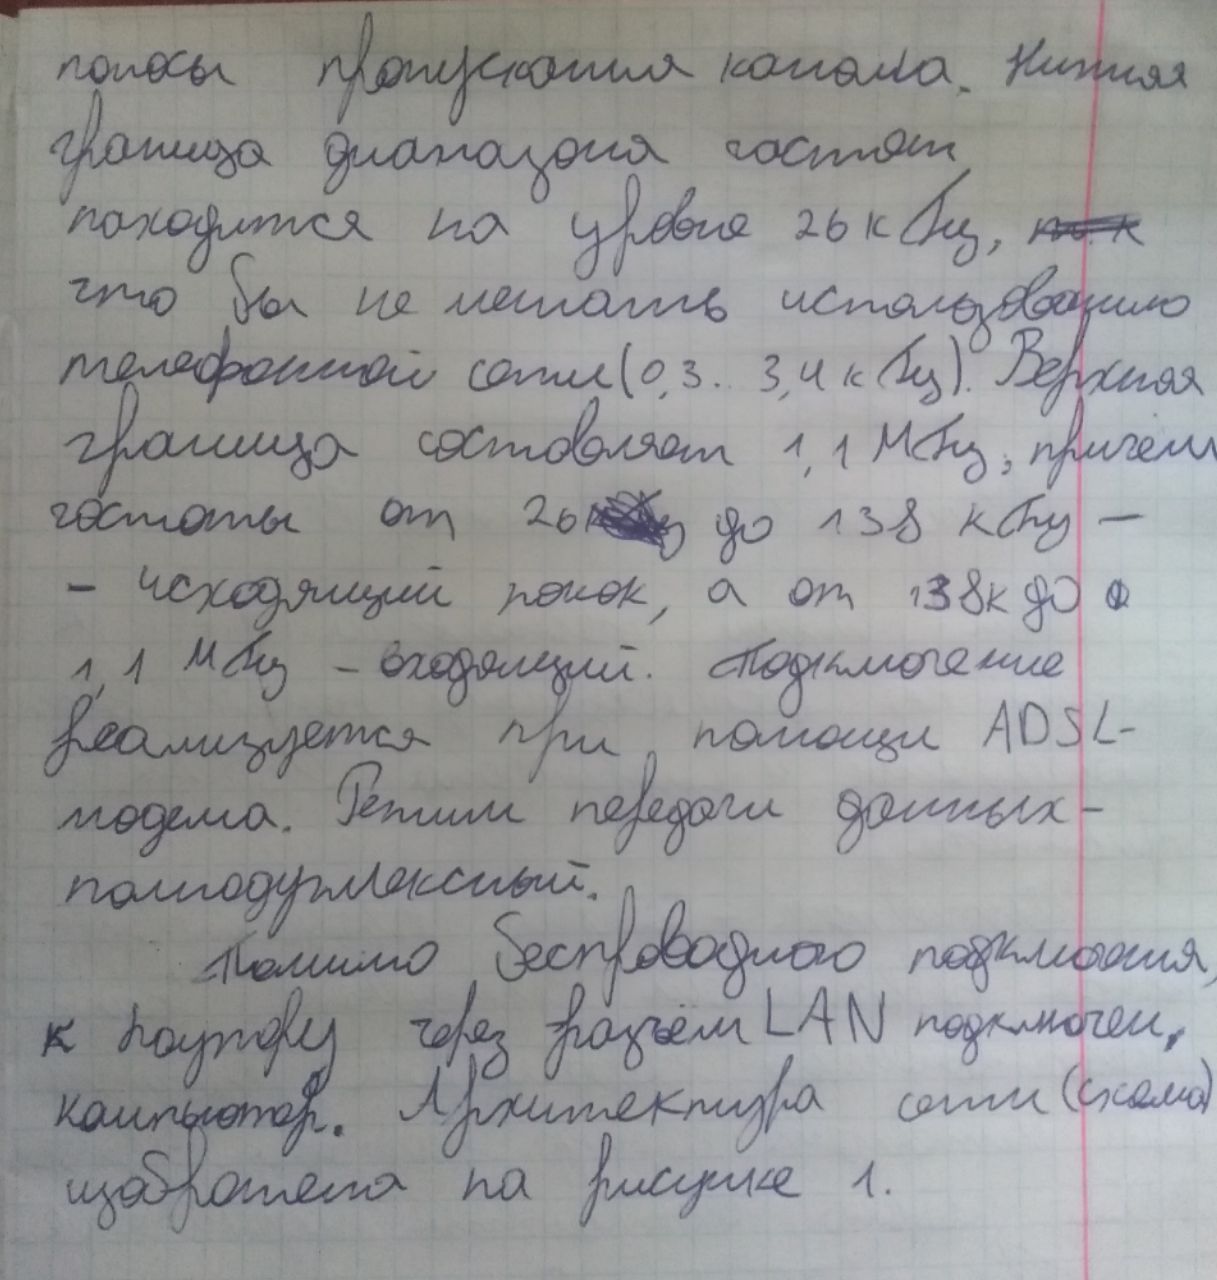 полосы пропускания канала. Нижняя
граница диапазона частот
находится на уровне 26 кГц,
что бы не мешать использованию
телефонной сети (0,3.. 3,4 кГц). Верхняя
граница составляет 1,1 МГц, причём
частоты от 26 до 138 кГц –
– исходящий поток, а от 138к до
1,1 МГц – входящий. Подключение
реализуется при помощи ADSL-
модема. Режим передачи данных –
полнодуплексный.
Помимо беспроводного подключения,
к роутеру через разъём LAN подключен
компьютер. Архитектура сети (схема)
изображена на рисунке 1.